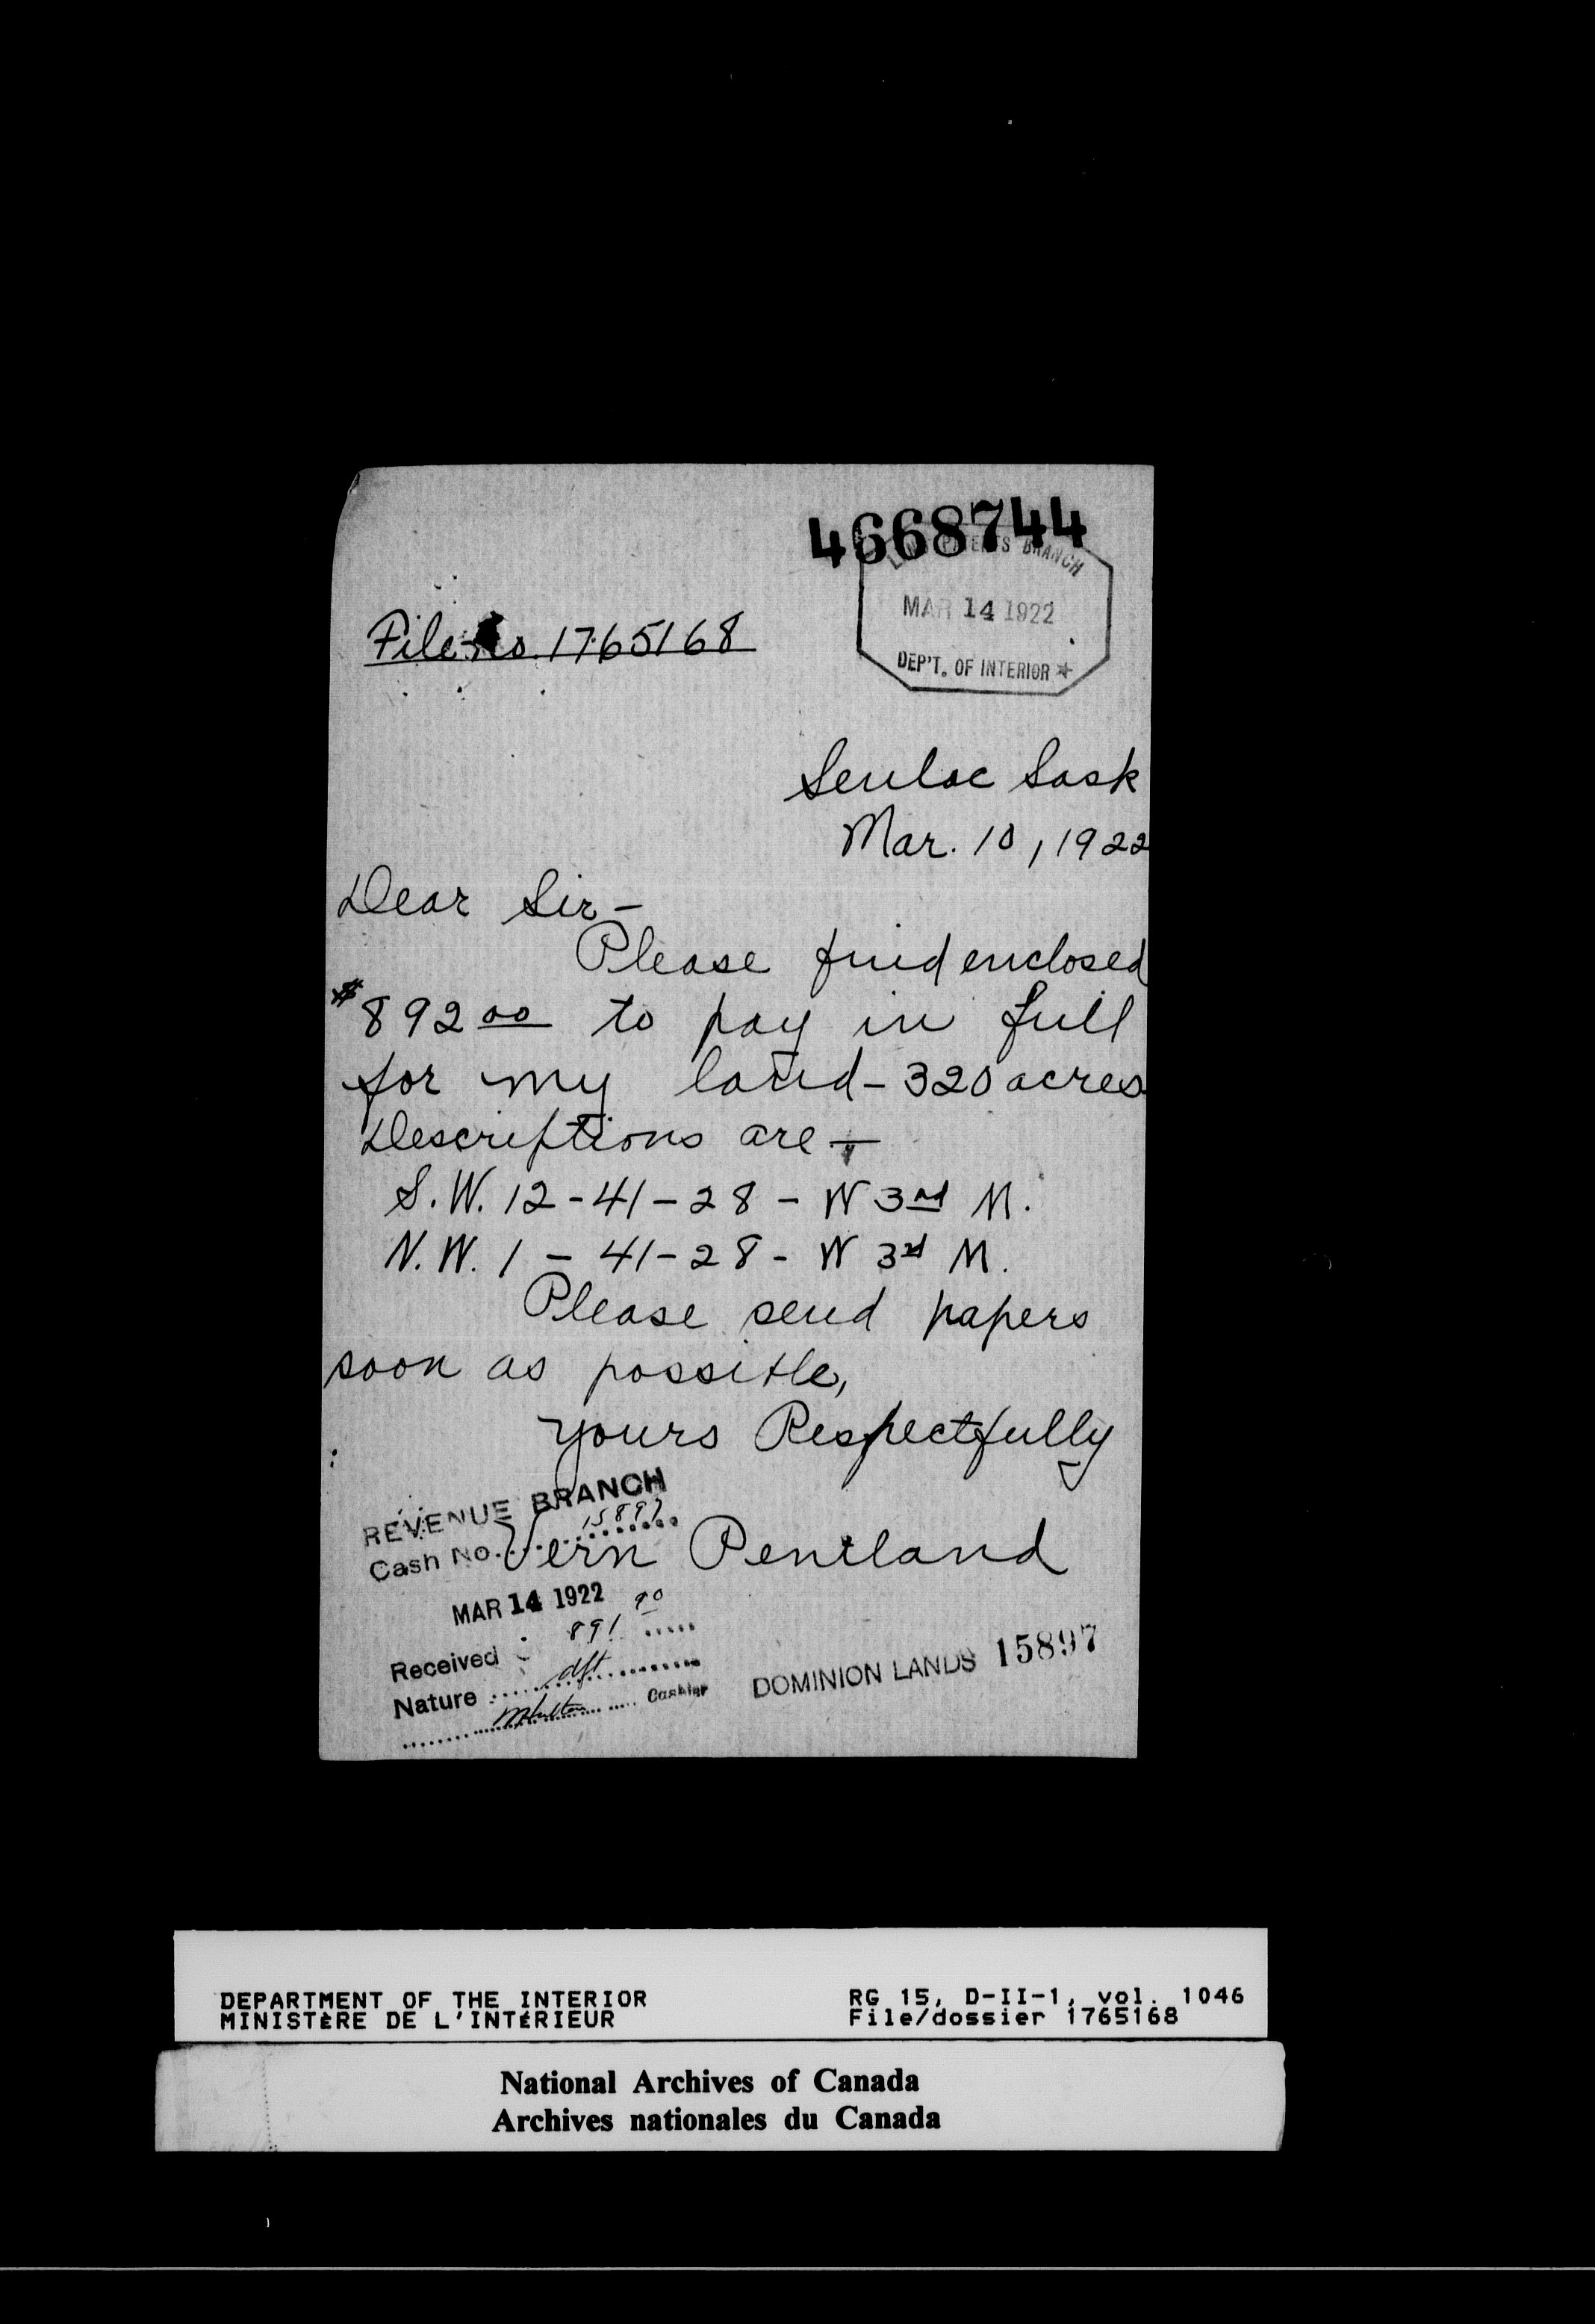 4668744
LAND PATENTS BRANCH
MAR 14 1922
DEP'T. OF INTERIOR
File No. 1765168
Senlac Sask
Mar. 10, 1922
Dear Sir -
Please find enclosed
$892 00 to pay in full
for my land - 320 acres
Descriptions are -
S.W. 12 - 41 - 28 - W 3rd M.
N.W. 1 - 41 - 28 - W 3rd M.
Please send papers
soon as possible,
Yours Respectfully
Vern Pentland
REVENUE BRANCH
Cash No. 15897
MAR 14 1922
Received 891 90
Nature dft
Cashier
DOMINION LANDS 15897
DEPARTMENT OF THE INTERIOR
MINISTÈRE DE L'INTÉRIEUR
RG 15, D-II-1, vol. 1046
File/dossier 1765168
National Archives of Canada
Archives nationales du Canada